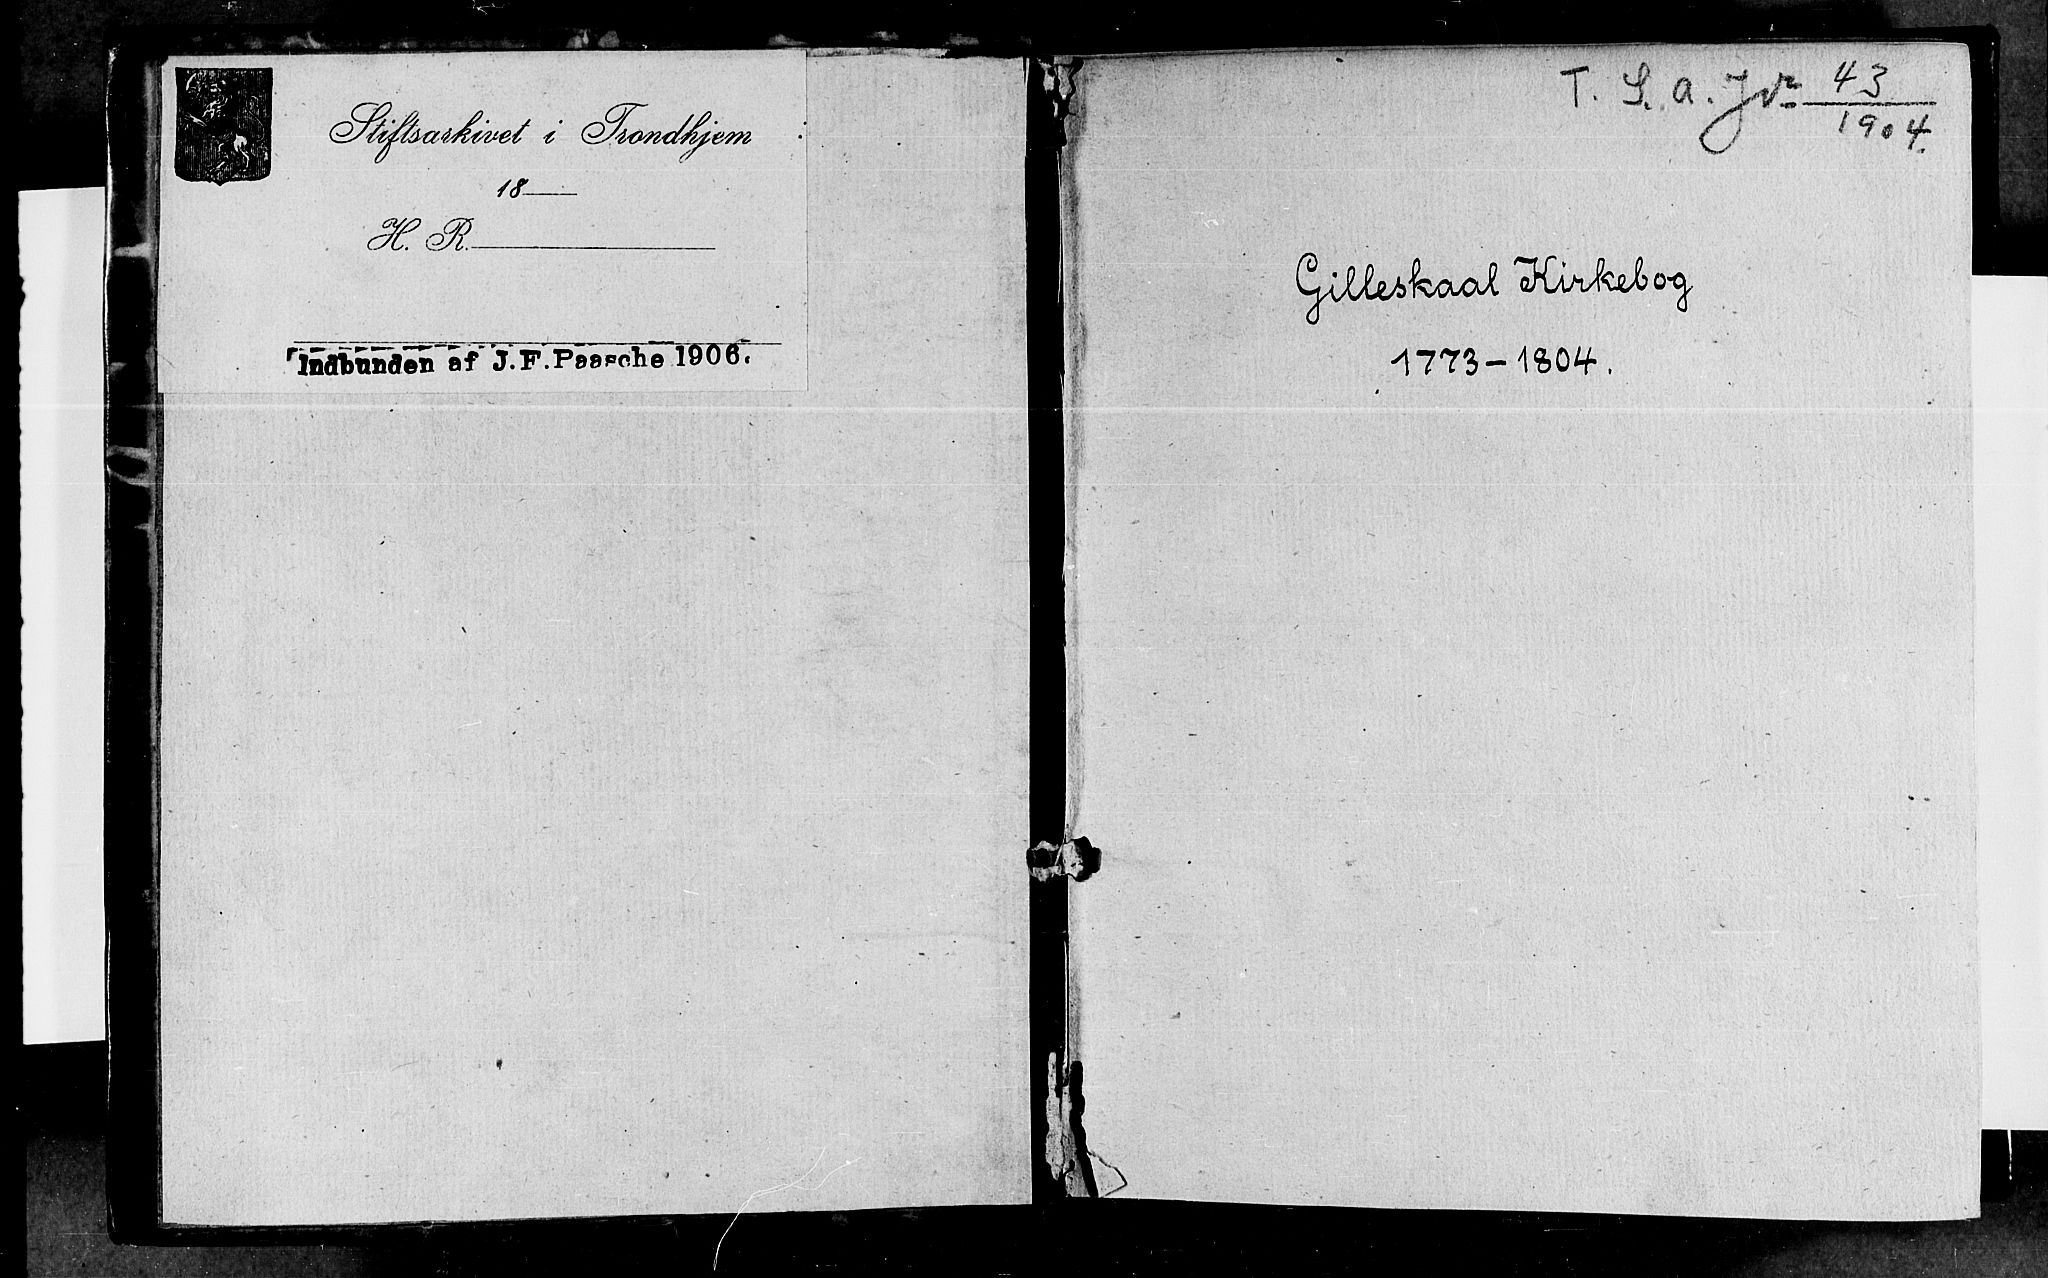 Stiftsarkivet i Trondhjem
18
H. R.
Indbunden af J. F. Paasche 1906.
T. S. a. Jnr 43
1904.
Gilleskaal Kirkebog
1773 – 1804.